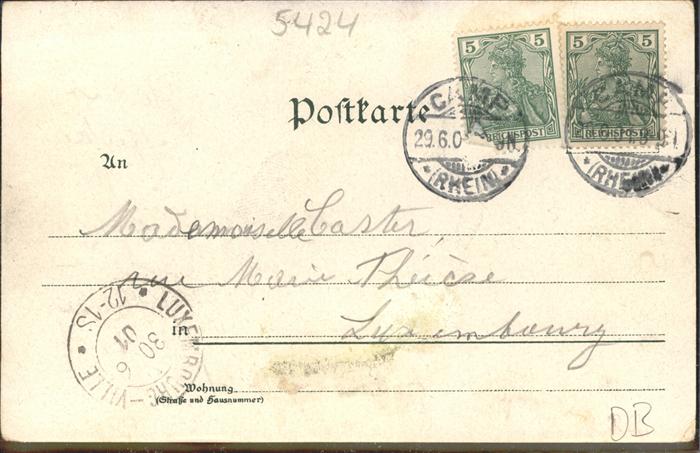 5424
5 5 5 5
REICHSPOST REICHSPOST
Postkarte
CAMP
29.6.0
*(RHEIN)*
(RHEIN)
An
Mademoiselle Caster
rue Marie Thérèse
in Luxembourg
LUXEMBOURG-VILLE
12-1S
30 6 01
Wohnung
(Straße und Hausnummer)
DB